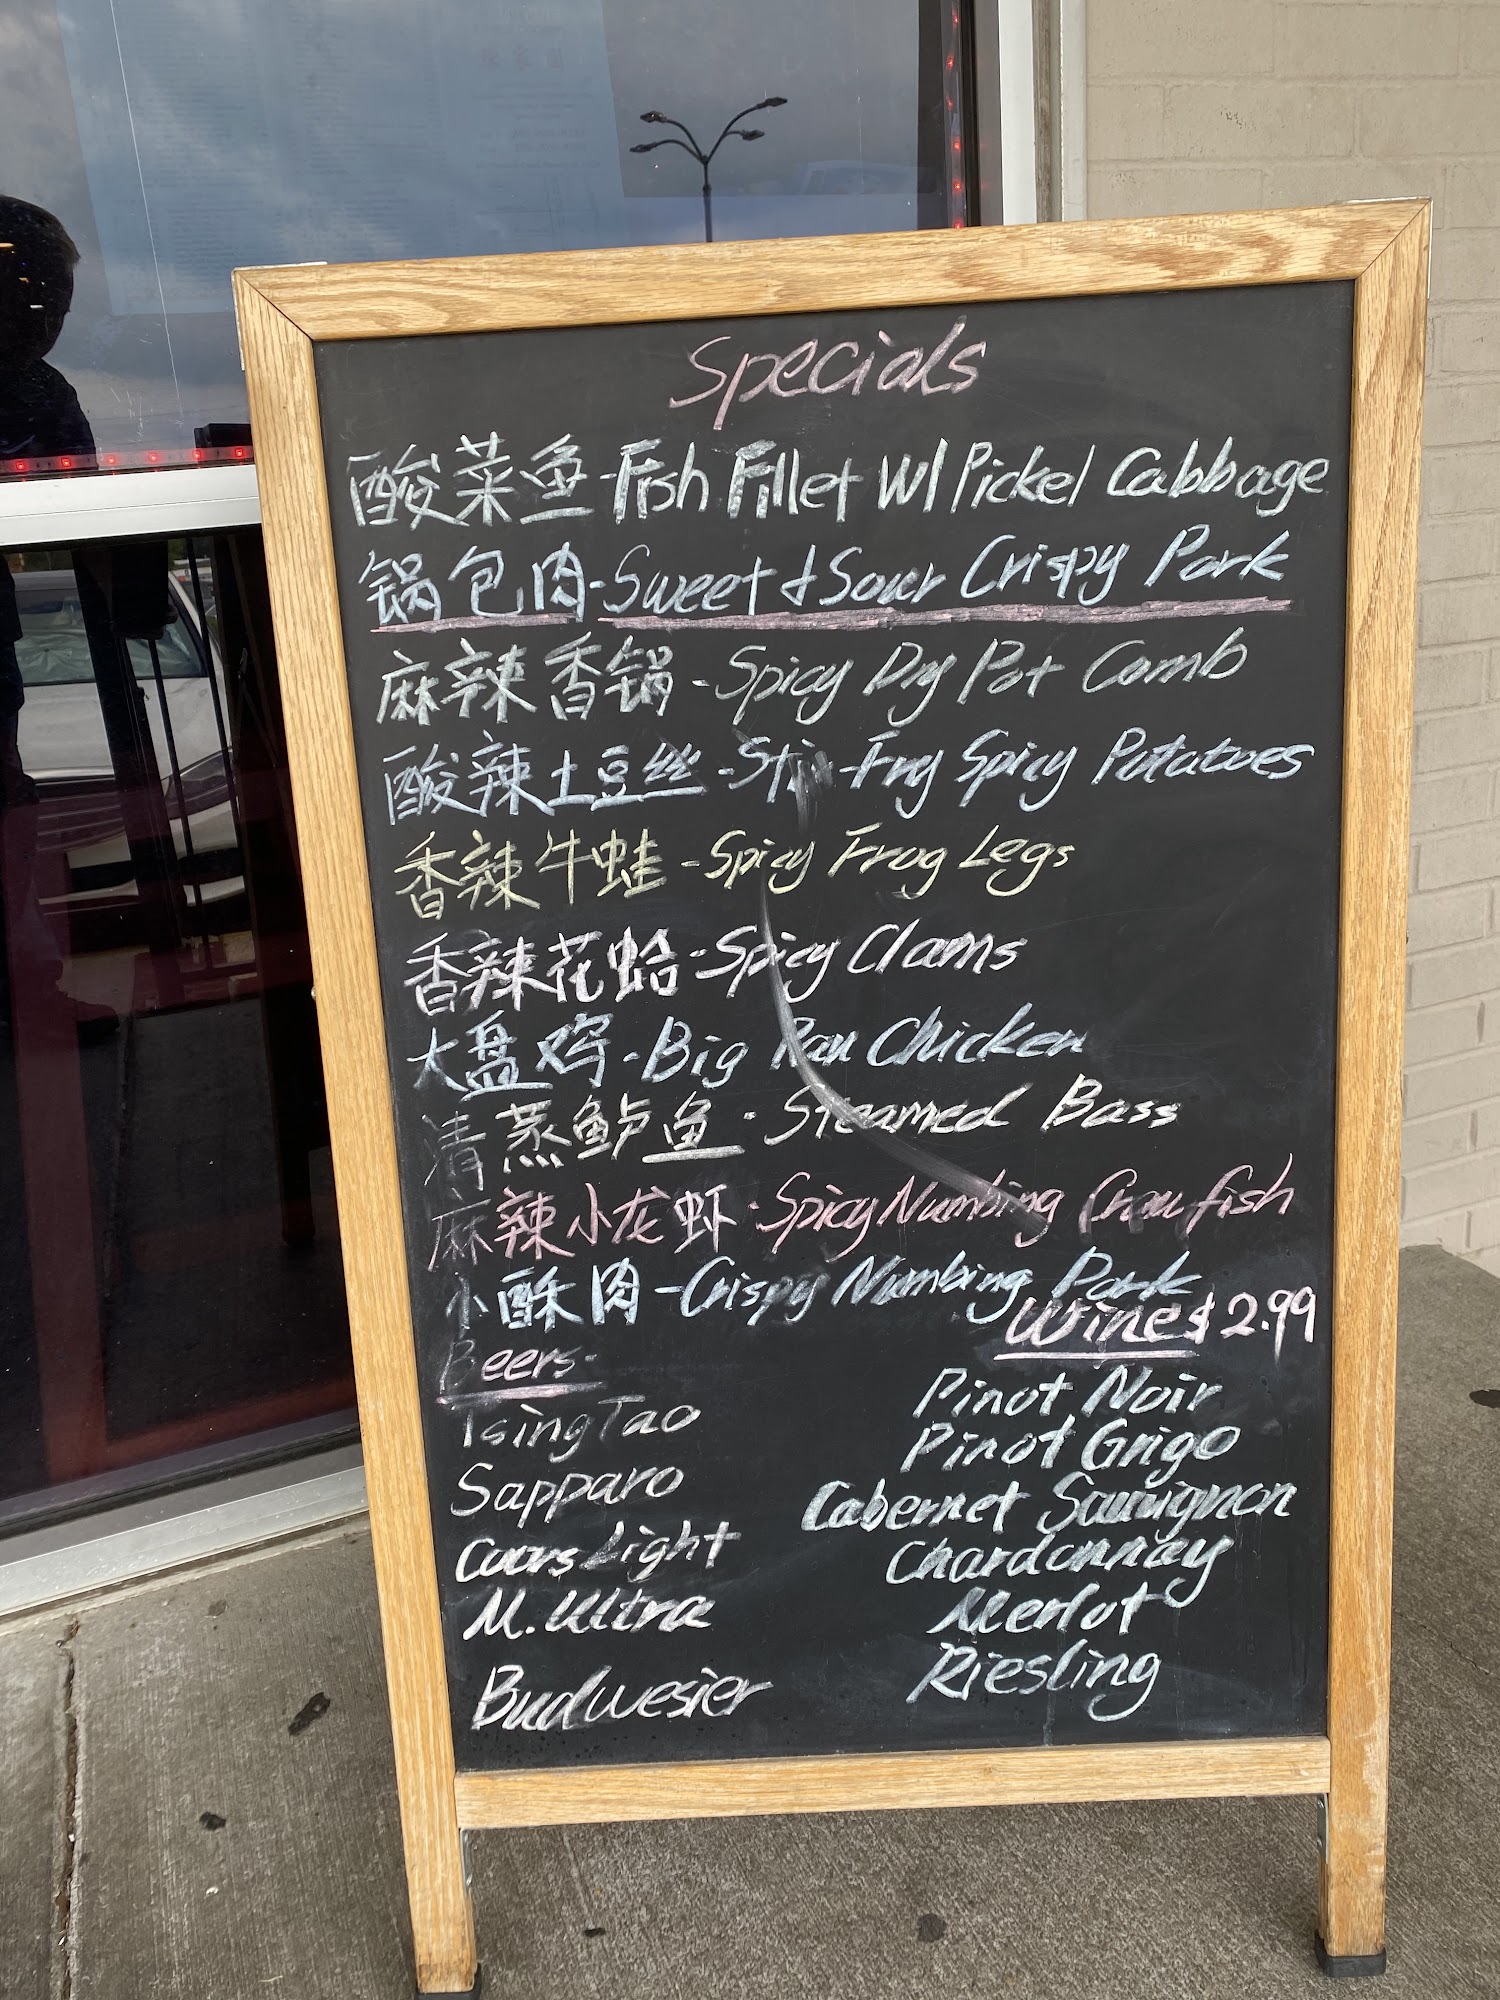 Specials
酸菜鱼-Fish Fillet W/Pickel Cabbage
锅包肉-Sweet & Sour Crispy Pork
麻辣香锅-Spicy Dry Pot Comb
酸辣土豆丝-Stir-Fry Spicy Potatoes
香辣牛蛙-Spicy Frog Legs
香辣花蛤-Spicy Clams
大盘鸡-Big Pan Chicken
清蒸鲈鱼-Steamed Bass
麻辣小龙虾-Spicy Numbing Crawfish
小酥肉-Crispy Numbing Pork
Beers-
TsingTao
Sapparo
Coors Light
M.Ultra
Budwesier
Wine $2.99
Pinot Noir
Pinot Grigo
Cabernet Sauvignon
Chardonnay
Merlot
Riesling